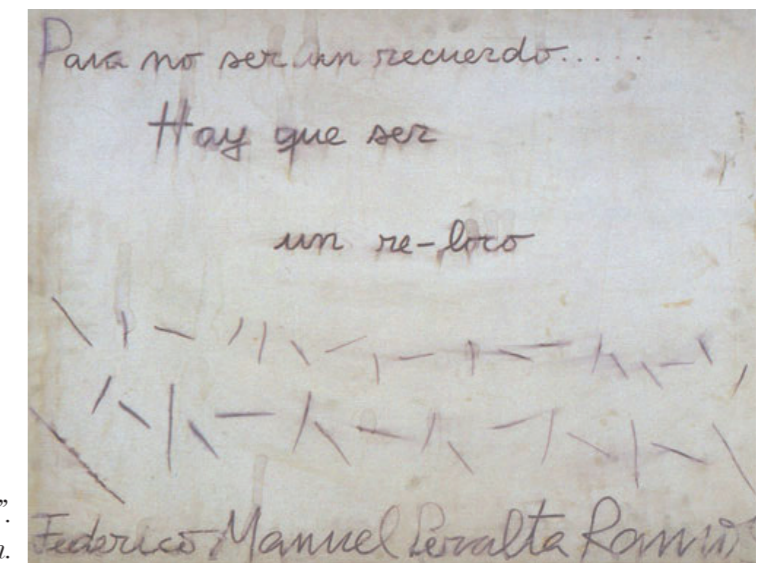 Para no ser un recuerdo.....
Hay que ser
un re-loco
”.
a.
Federico Manuel Peralta Ramos